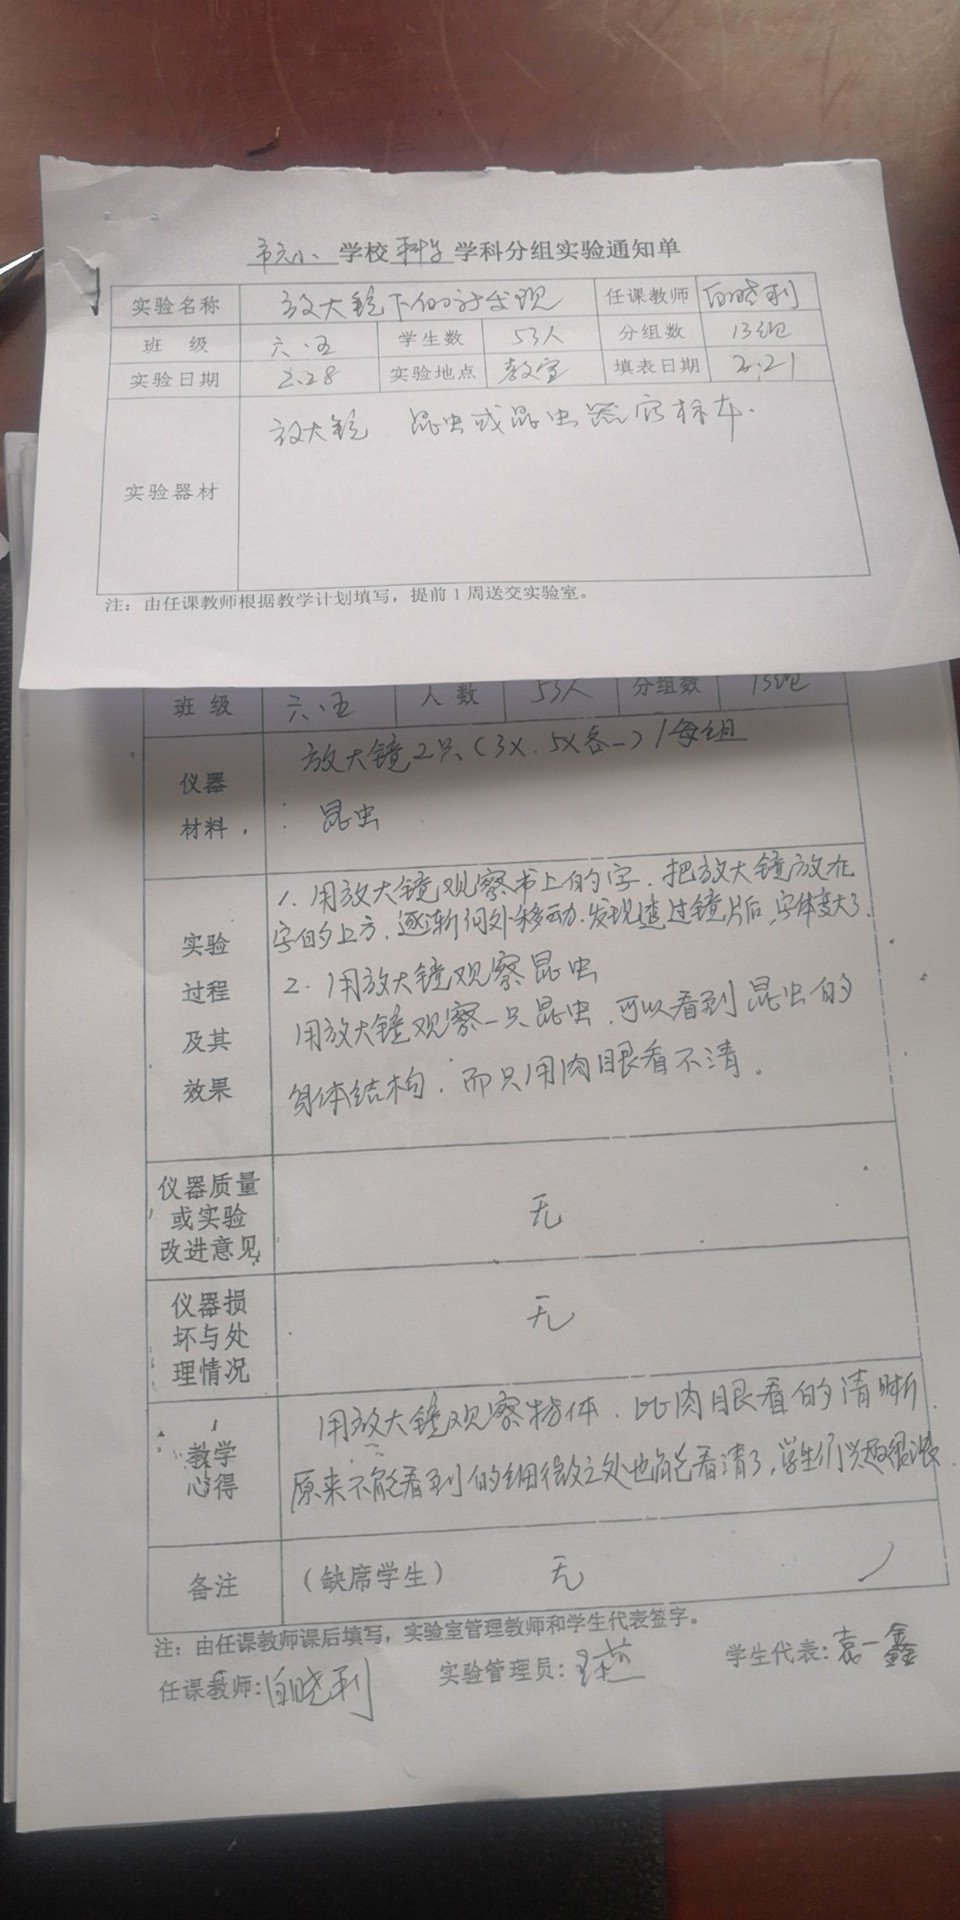 市六小 学校 科学 学科分组实验通知单
实验名称 放大镜下的新发现 任课教师 白晓利
班 级 六.五 学生数 53人 分组数 13组
实验日期 2.28 实验地点 教室 填表日期 2.21
实验器材 放大镜 昆虫或昆虫器官标本.
注：由任课教师根据教学计划填写，提前1周送交实验室。
班 级 六.五 人 数 53人 分组数 13组
仪器 放大镜2只(3X.5X各一)/每组
材料 昆虫
实验
过程
及其
效果
1.用放大镜观察书上的字.把放大镜放在
字的上方.逐渐向外移动.发现透过镜片后,字体变大了.
2.用放大镜观察昆虫
用放大镜观察一只昆虫.可以看到昆虫的
身体结构.而只用肉眼看不清.
仪器质量
或实验
改进意见
无
仪器损
坏与处
理情况
无
教学
心得
用放大镜观察物体.比肉眼看的清晰.
原来不能看到的细微之处也能看清了,学生们兴趣很浓.
备注 (缺席学生) 无
注：由任课教师课后填写，实验室管理教师和学生代表签字。
任课教师:白晓利 实验管理员: 学生代表:袁一鑫